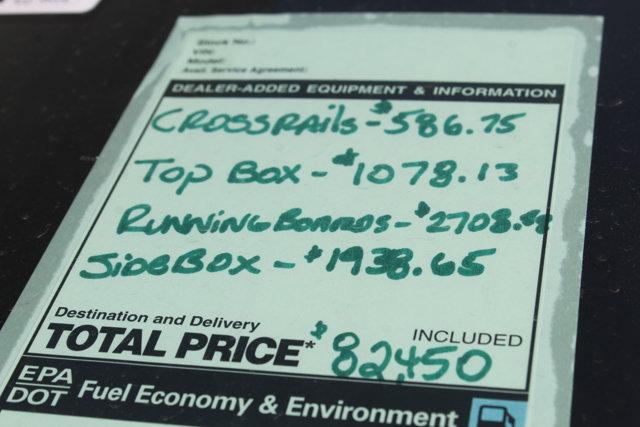 Stock No.:
VIN:
Model:
Avail. Service Agreement:
DEALER-ADDED EQUIPMENT & INFORMATION
CROSSRAils - $586.75
TOP BOX - $1078.13
RUNNING BOARDS - $2708.
SiDEBOX - $1938.65
Destination and Delivery
INCLUDED
TOTAL PRICE* $82,450
EPA
DOT
Fuel Economy & Environment